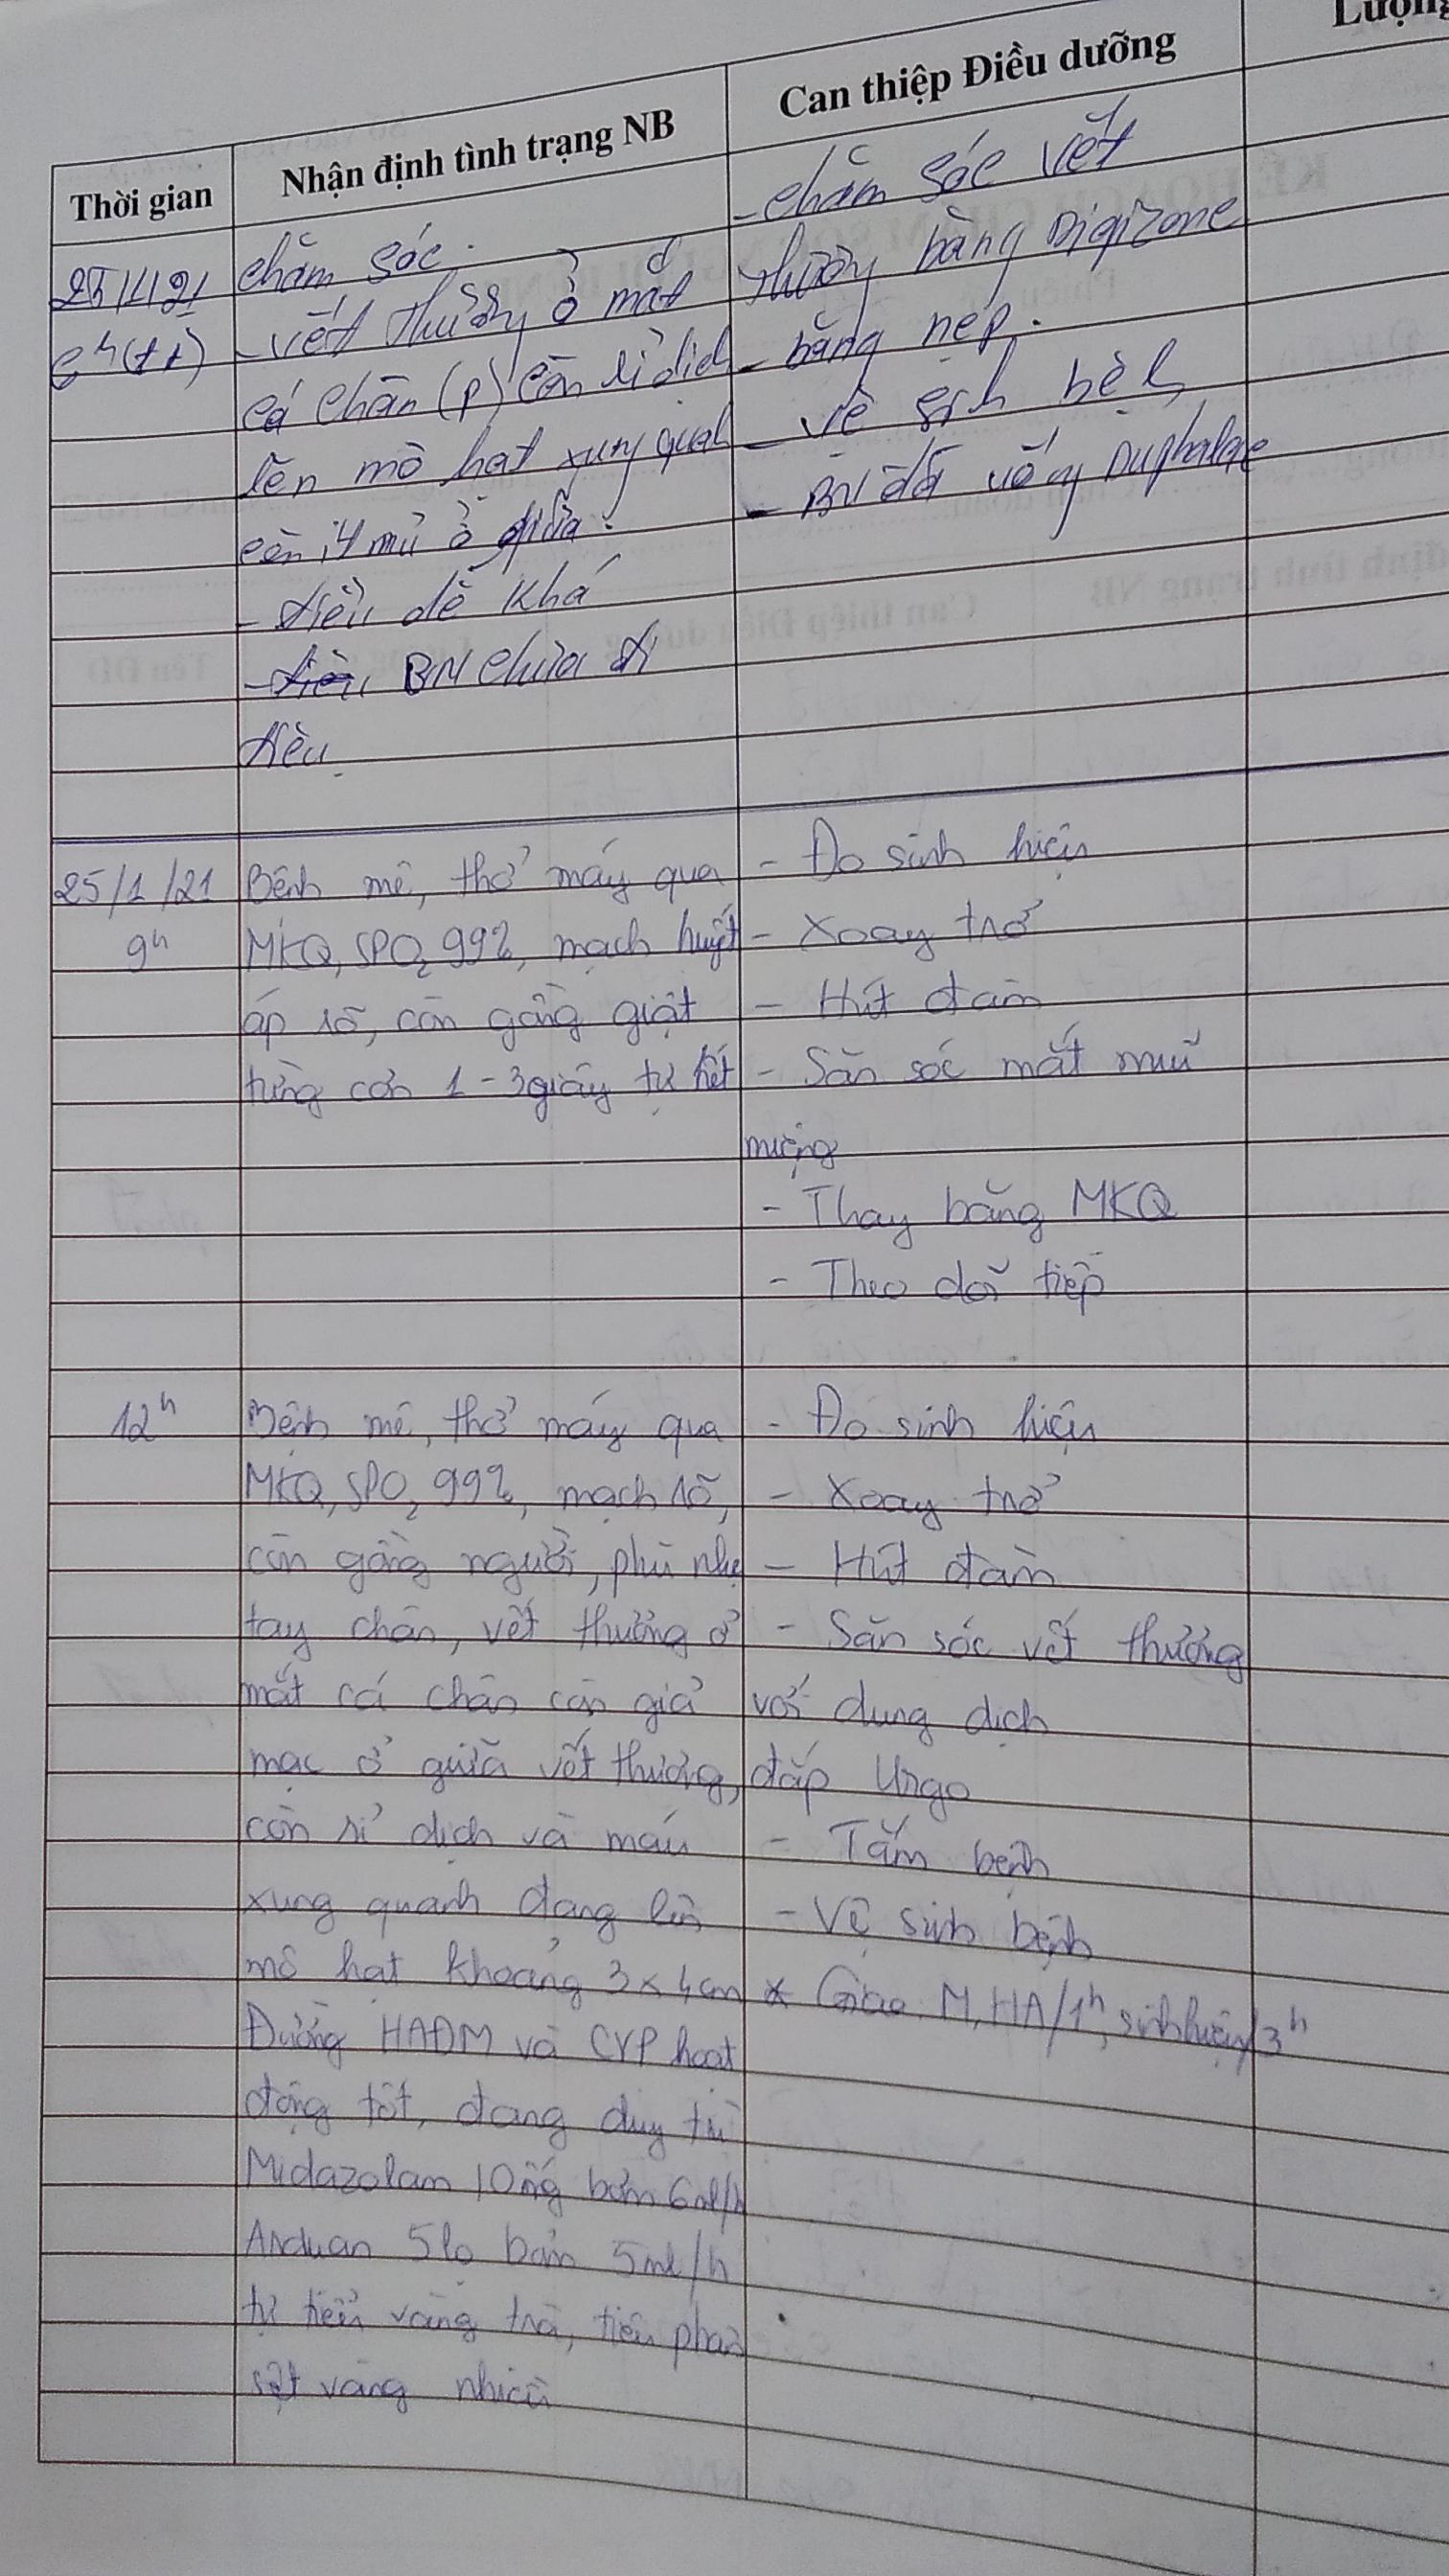 Thời gian
Nhận định tình trạng NB
Can thiệp Điều dưỡng
Lượng
25/1/21
chăm sóc.
- vết thương ở mắt
cá chân (P) còn rỉ dịch
lên mô hạt xung quanh
còn ít mủ ở giữa.
- tiểu dễ khá
- BN chưa đi
tiêu
- chăm sóc vết
thương bằng Digizone
- băng nẹp.
- vệ sinh
- BN đã uống Duphalac
25/1/21
9h
Bệnh mê, thở máy qua
MKQ, SPO2 99%, mạch huyết
áp rõ, còn gồng giật
từng cơn 1 - 3 giây tự hết
- Đo sinh hiệu
- Xoay trở
- Hút đàm
- Săn sóc mắt mũi
miệng
- Thay băng MKQ
- Theo dõi tiếp
12h
Bệnh mê, thở máy qua
MKQ, SPO2 99%, mạch rõ,
còn gồng người, phù nhẹ
tay chân, vết thương ở
mắt cá chân còn giả
mạc ở giữa vết thương,
còn rỉ dịch và máu
xung quanh đang lên
mô hạt khoảng 3 x 4cm
Đường HAĐM và CVP hoạt
động tốt, đang duy trì
Midazolam 10 ống bơm 6ml/h
Arduan 5 lọ bơm 5ml/h
tự tiểu vàng trà, tiêu phân
sệt vàng nhiều
- Đo sinh hiệu
- Xoay trở
- Hút đàm
- Săn sóc vết thương
với dung dịch
đắp Urgo
- Tắm bệnh
- Vệ sinh bệnh
* Giao M, HA/1h, sinh hiệu/3h